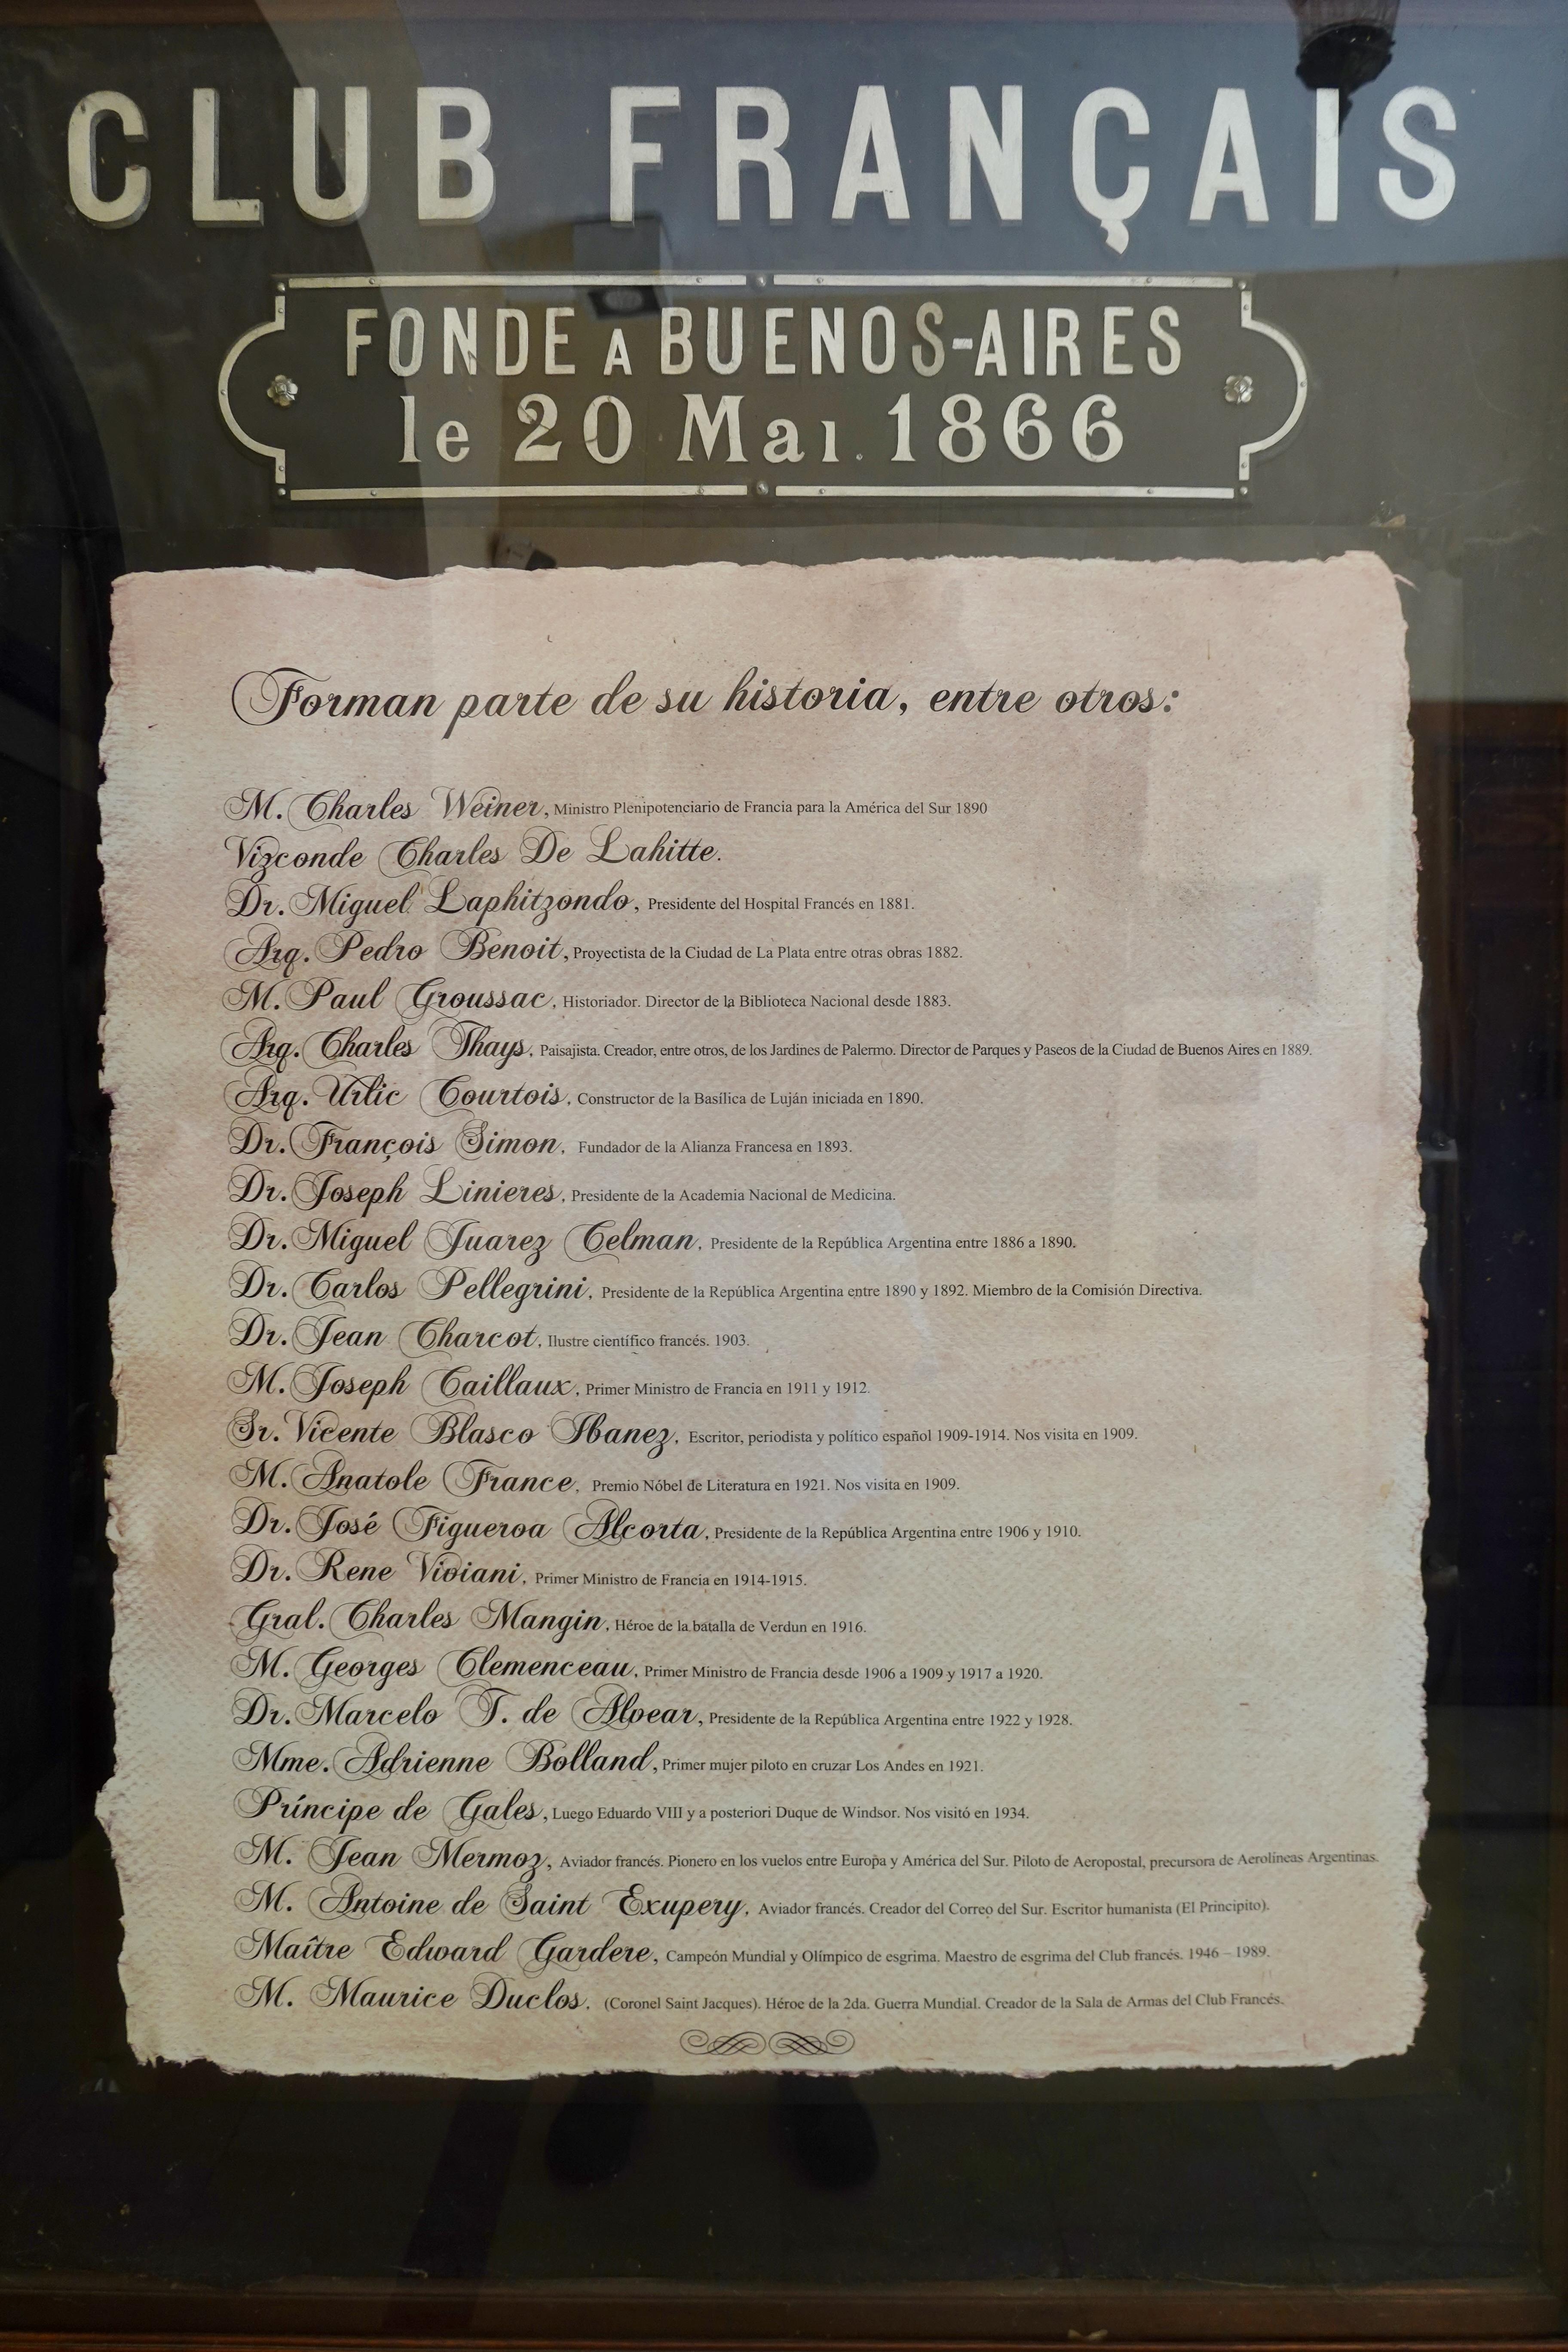 CLUB FRANÇAIS
FONDE A BUENOS-AIRES
le 20 Mai. 1866
Forman parte de su historia, entre otros:
M. Charles Weiner, Ministro Plenipotenciario de Francia para la América del Sur 1890
Vizconde Charles De Lahitte.
Dr. Miguel Laphitzondo, Presidente del Hospital Francés en 1881.
Arq. Pedro Benoit, Proyectista de la Ciudad de La Plata entre otras obras 1882.
M. Paul Groussac, Historiador. Director de la Biblioteca Nacional desde 1883.
Arq. Charles Thays, Paisajista. Creador, entre otros, de los Jardines de Palermo. Director de Parques y Paseos de la Ciudad de Buenos Aires en 1889.
Arq. Urlic Courtois, Constructor de la Basílica de Luján iniciada en 1890.
Dr. François Simon, Fundador de la Alianza Francesa en 1893.
Dr. Joseph Linieres, Presidente de la Academia Nacional de Medicina.
Dr. Miguel Juarez Celman, Presidente de la República Argentina entre 1886 a 1890.
Dr. Carlos Pellegrini, Presidente de la República Argentina entre 1890 y 1892. Miembro de la Comisión Directiva.
Dr. Jean Charcot, Ilustre científico francés. 1903.
M. Joseph Caillaux, Primer Ministro de Francia en 1911 y 1912.
Sr. Vicente Blasco Ibanez, Escritor, periodista y político español 1909-1914. Nos visita en 1909.
M. Anatole France, Premio Nóbel de Literatura en 1921. Nos visita en 1909.
Dr. José Figueroa Alcorta, Presidente de la República Argentina entre 1906 y 1910.
Dr. Rene Viviani, Primer Ministro de Francia en 1914-1915.
Gral. Charles Mangin, Héroe de la batalla de Verdun en 1916.
M. Georges Clemenceau, Primer Ministro de Francia desde 1906 a 1909 y 1917 a 1920.
Dr. Marcelo T. de Alvear, Presidente de la República Argentina entre 1922 y 1928.
Mme. Adrienne Bolland, Primer mujer piloto en cruzar Los Andes en 1921.
Príncipe de Gales, Luego Eduardo VIII y a posteriori Duque de Windsor. Nos visitó en 1934.
M. Jean Mermoz, Aviador francés. Pionero en los vuelos entre Europa y América del Sur. Piloto de Aeropostal, precursora de Aerolíneas Argentinas.
M. Antoine de Saint Exupery, Aviador francés. Creador del Correo del Sur. Escritor humanista (El Principito).
Maître Edward Gardere, Campeón Mundial y Olímpico de esgrima. Maestro de esgrima del Club francés. 1946 – 1989.
M. Maurice Duclos, (Coronel Saint Jacques). Héroe de la 2da. Guerra Mundial. Creador de la Sala de Armas del Club Francés.